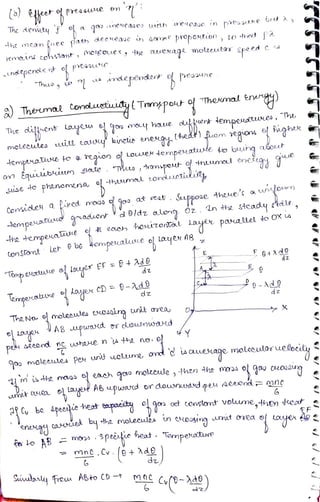 (b) Effect of pressure on 'η':
The density 'ρ' of a gas increases with increase in pressure but λ,
the mean free path decrease in same proportion, so that ρλ
remains constant. Moreover, the average molecular speed c̄ is
independent of pressure
Thus, η is independent of pressure.
2) Thermal Conductivity (Transport of Thermal Energy)
The different layers of gas may have different temperatures. The
molecules will carry kinetic energy (heat) from regions of higher
temperature to a region of lower temperature to bring about
an Equilibrium state. Thus, transport of thermal energy give
rise to phenomena of thermal conductivity.
Consider a fixed mass of gas at rest. Suppose there's a uniform
temperature gradient dθ/dz along OZ. In the steady state,
the temperature of each horizontal layer parallel to OX is
constant. Let θ be temperature of layer AB
Temperature of layer EF = θ + λdθ/dz
Temperature of layer CD = θ - λdθ/dz
E F θ + λdθ/dz
A B θ
C D θ - λdθ/dz
O X
Y
The No. of molecules crossing unit area
of layer AB upward or downward
per second nc/6 where n is the no. of
gas molecules per unit volume and c̄ is average molecular velocity
If 'm' is the mass of each gas molecule, then the mass of gas crossing
unit area of layer AB upward or downward per second = mnc/6
If Cv be specific heat capacity of gas at constant volume, then heat
energy carried by the molecules in crossing unit area of layer EF
to AB = mass . specific heat . Temperature
= mnc/6 . Cv . (θ + λdθ/dz)
Similarly from AB to CD → mnc/6 Cv (θ - λdθ/dz)